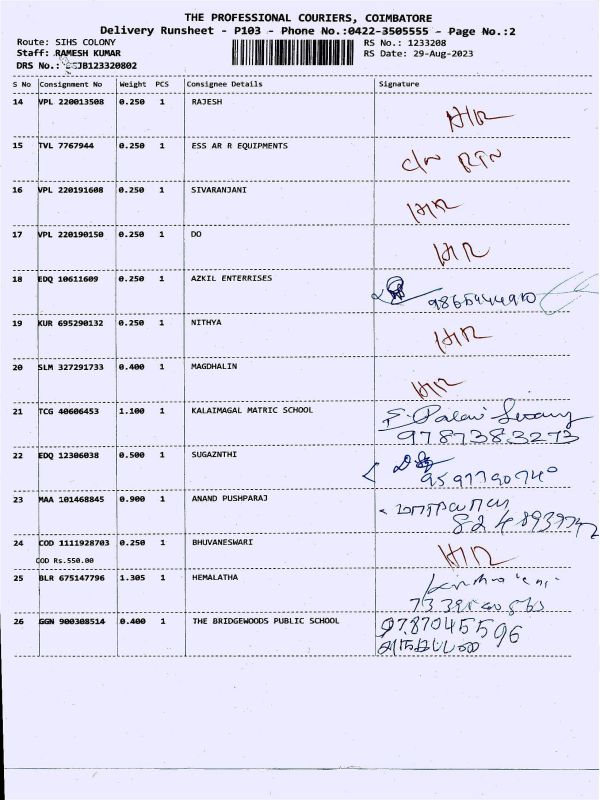 THE PROFESSIONAL COURIERS, COIMBATORE
Delivery Runsheet - P103 - Phone No.:0422-3505555 - Page No.:2
Route: SIHS COLONY RS No.: 1233208
Staff: RAMESH KUMAR RS Date: 29-Aug-2023
DRS No.:
S No Consignment No Weight PCS Consignee Details Signature
14 VPL 220013508 0.250 1 RAJESH
15 TVL 7767944 0.250 1 ESS AR R EQUIPMENTS
16 VPL 220191608 0.250 1 SIVARANJANI
17 VPL 220190150 0.250 1 DO
18 EDQ 10611609 0.250 1 AZKIL ENTERRISES
19 KUR 695290132 0.250 1 NITHYA
20 SLM 327291733 0.400 1 MAGDHALIN
21 TCG 40606453 1.100 1 KALAIMAGAL MATRIC SCHOOL
9787383273
22 EDQ 12306038 0.500 1 SUGAZNTHI
23 MAA 101468845 0.900 1 ANAND PUSHPARAJ
24 COD 1111928703 0.250 1 BHUVANESWARI
COD Rs.550.00
25 BLR 675147796 1.305 1 HEMALATHA
26 GGN 900308514 0.400 1 THE BRIDGEWOODS PUBLIC SCHOOL
9787045596